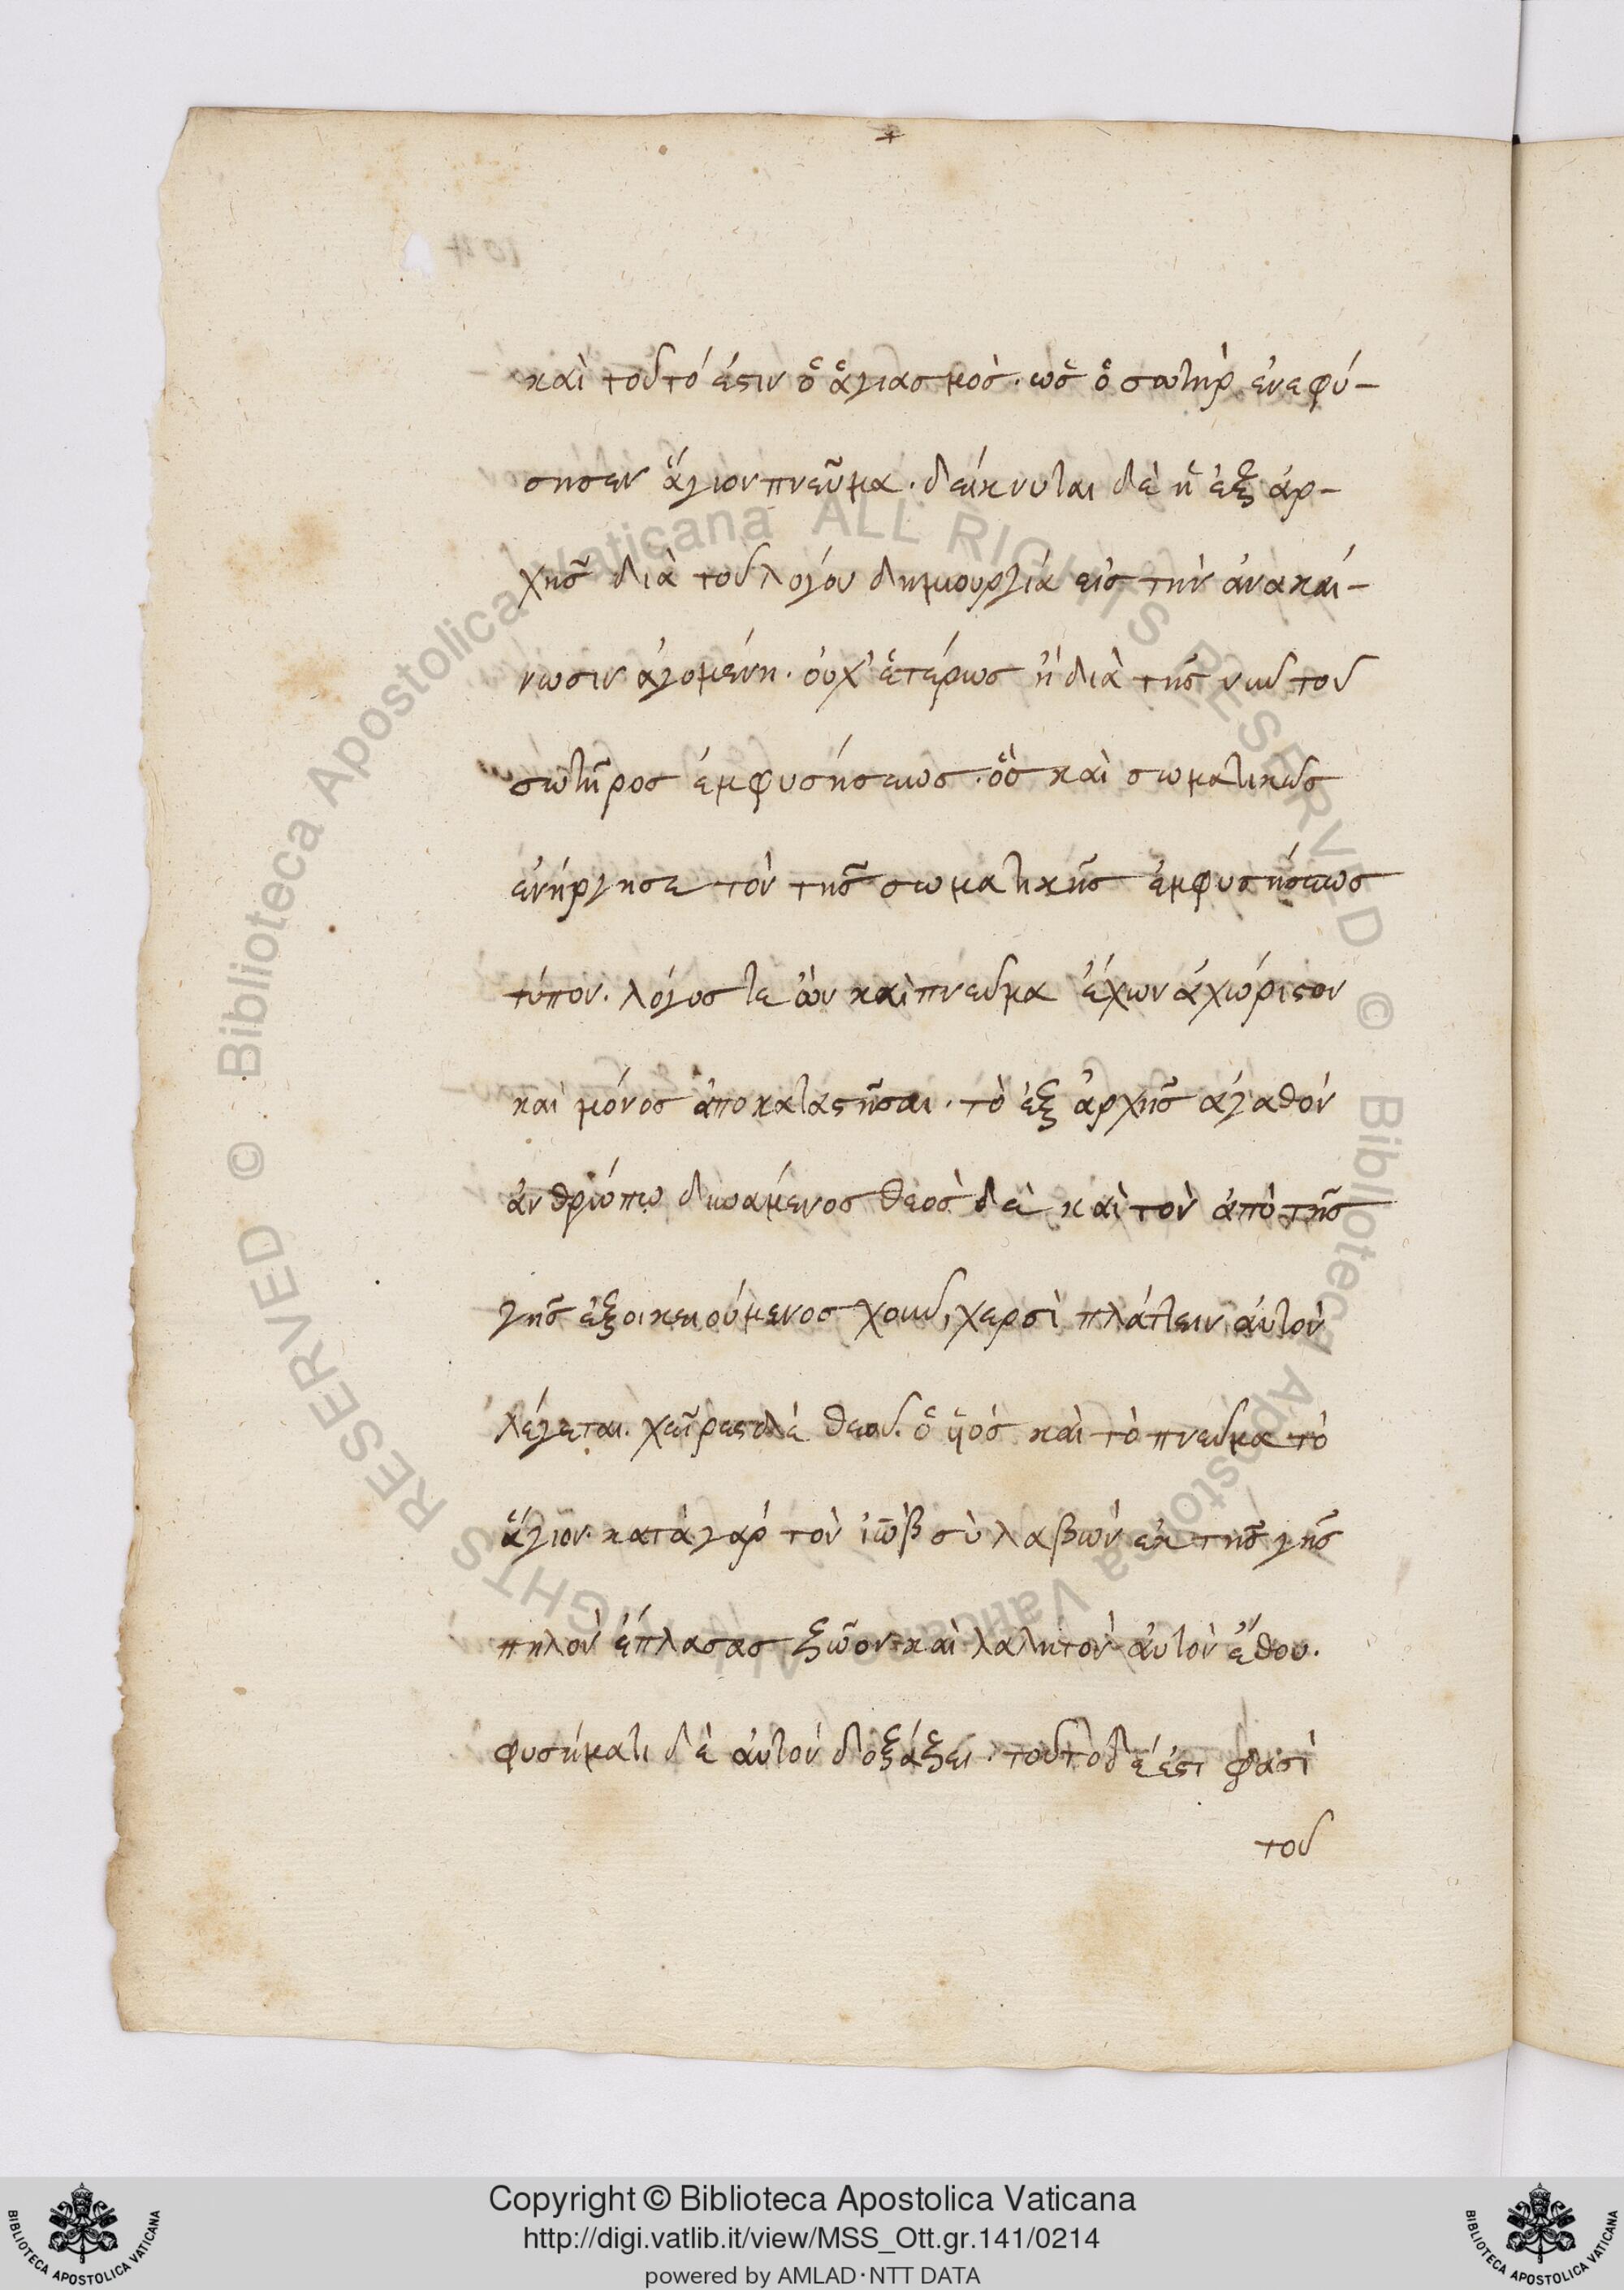 καὶ τοῦτό ἐστιν ὁ ἁγιασμός. ὡς ὁ σωτὴρ ἐνεφύ-
σησεν ἅγιον πνεῦμα. δείκνυται δὲ ἡ ἐξ ἀρ-
χῆς διὰ τοῦ λόγου δημιουργία εἰς τὴν ἀνακαί-
νωσιν ἀγομένη. οὐχ' ἑτέρως ἢ διὰ τῆς νῦν τοῦ
σωτῆρος ἐμφυσήσεως. ὃς καὶ σωματικῶς
ἐνήργησε τὸν τῆς σωματικῆς ἐμφυσήσεως
τύπον. λόγος τε ὢν καὶ πνεῦμα ἔχων ἀχώριστον
καὶ μόνος ἀποκαταστῆσαι. τὸ ἐξ ἀρχῆς ἀγαθὸν
ἀνθρώπῳ δυσάμενος θεὸς δὲ καὶ τὸν ἀπὸ τῆς
γῆς ἐξοικειούμενος χοῦν, χερσὶ πλάττειν αὐτὸν
λέγεται. χεῖρες δὲ θεοῦ. ὁ ὑιὸς καὶ τὸ πνεῦμα τὸ
ἅγιον. κατὰ γὰρ τὸν ἰὼβ σὺ λαβὼν ἐκ τῆς γῆς
πηλὸν ἔπλασας ζῶον καὶ λαλητὸν αὐτὸν ἔθου.
φυσήματι δὲ αὐτὸν δοξάζει. τοῦτο δέ ἐστι φασὶ
τοῦ
Copyright © Biblioteca Apostolica Vaticana
http://digi.vatlib.it/view/MSS_Ott.gr.141/0214
powered by AMLAD·NTT DATA
BIBLIOTECA APOSTOLICA VATICANA
BIBLIOTECA APOSTOLICA VATICANA
© Biblioteca Apostolica Vaticana ALL RIGHTS RESERVED © Biblioteca Apostolica Vaticana ALL RIGHTS RESERVED